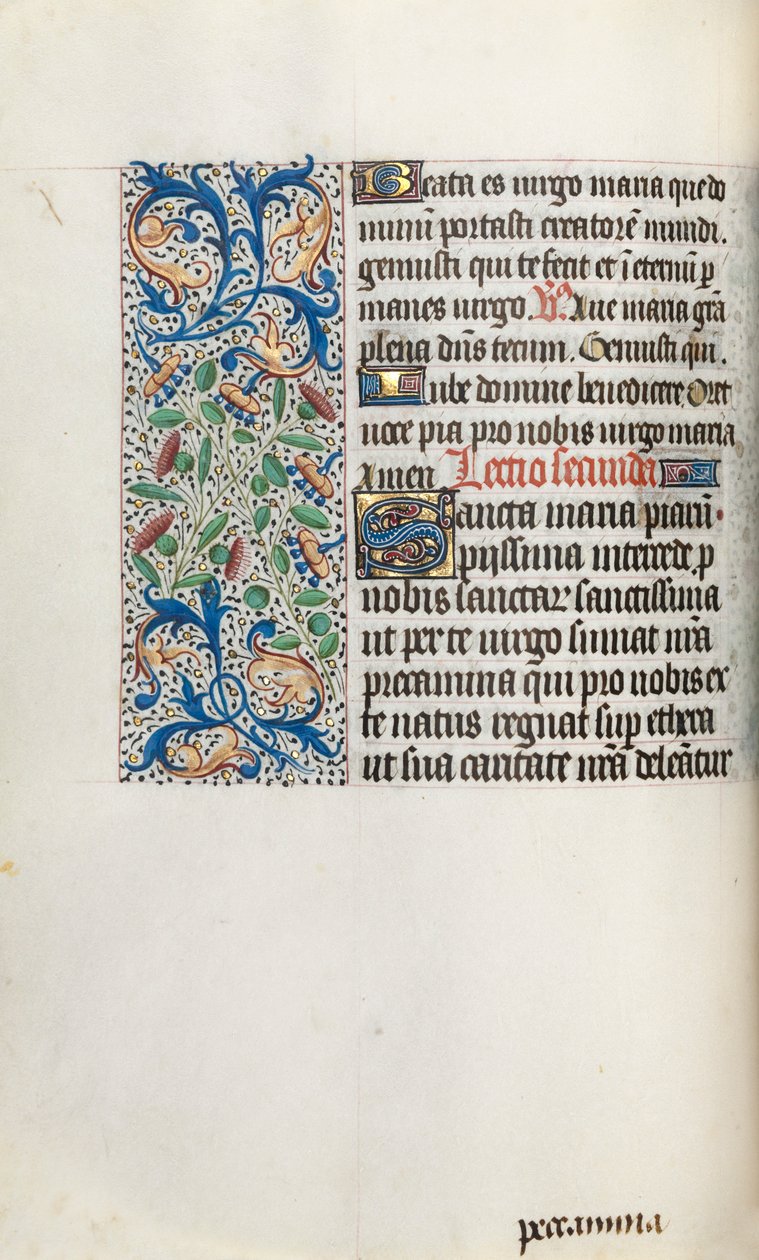 Beata es uirgo maria que do
minũ portasti creatorẽ mundi.
genuisti qui te fecit et ĩ eternũ p
manes uirgo. Vͣ. Aue maria grã
plena dñs tecum. Genuisti qui.
Iube domine benedicere. Oret
uoce pia pro nobis uirgo maria
Amen Lectio secunda
Sancta maria piarũ
piissima intercede p
nobis sanctaꝝ sanctissima
ut per te uirgo sumat nrã
precamina qui pro nobis ex
te natus regnat suꝑ ethera
ut sua caritate nrã deleãtur
precamina